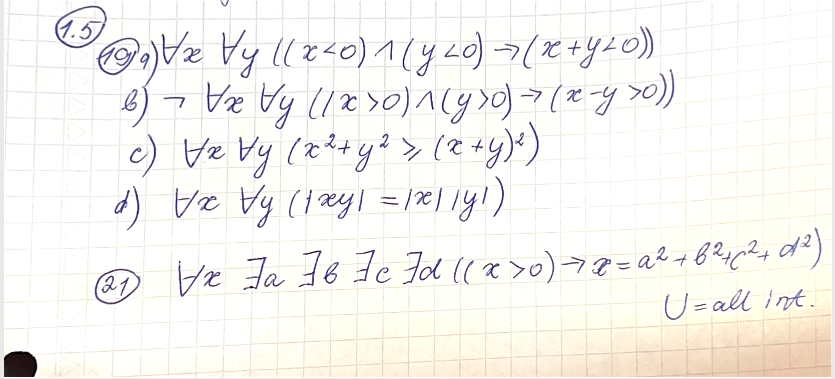 1.5
19) a) ∀x ∀y ((x<0) ∧ (y<0) → (x+y<0))
b) ¬ ∀x ∀y ((x>0) ∧ (y>0) → (x-y>0))
c) ∀x ∀y (x² + y² ⩾ (x+y)²)
d) ∀x ∀y (|xy| = |x| |y|)
21 ∀x ∃a ∃b ∃c ∃d ((x>0) → x = a² + b² + c² + d²)
U = all int.